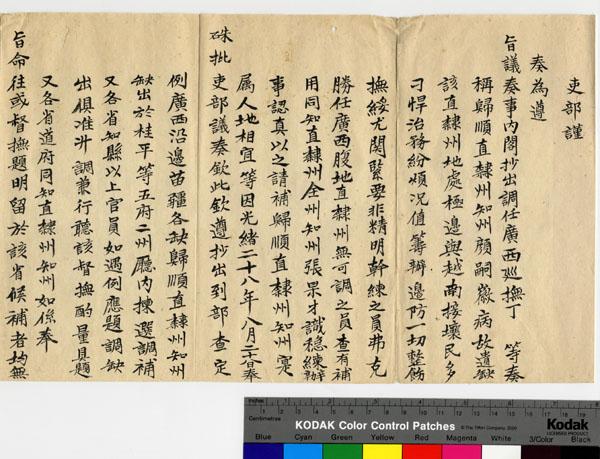 吏部謹
奏為遵
旨議奏事內閣抄出調任廣西巡撫丁 等奏
稱歸順直隸州知州顏嗣徽病故遺缺
該直隸州地處極邊與越南接壤民多
刁悍治務紛煩況值籌辦邊防一切整飭
撫綏尤關緊要非精明幹練之員弗克
勝任廣西腹地直隸州無可調之員查有補
用同知直隸州全州知州張杲才識穩練辦
事認真以之請補歸順直隸州知州寔
屬人地相宜等因光緒二十八年八月二十日奉
硃批吏部議奏欽此欽遵抄出到部查定
例廣西沿邊苗疆各缺歸順直隸州知州
缺出於桂平等五府二州廳內揀選調補
又各省知縣以上官員如遇例應題調缺
出俱准升調兼行聽該督撫酌量具題
又各省道府同知直隸州知州如係奉
旨命往或督撫題明留於該省候補者均無
inches
Centimetres
KODAK Color Control Patches
© The Tiffen Company, 2000
Kodak
LICENSED PRODUCT
Blue Cyan Green Yellow Red Magenta White 3/Color Black